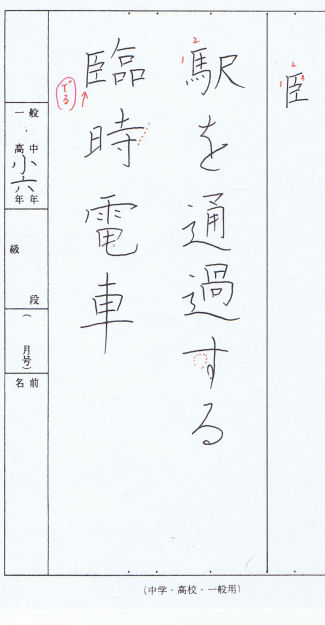 臣
駅を通過する
臨時電車
でる
一般・高中小六年年
級 段
( 月号)
名前
(中学・高校・一般用)